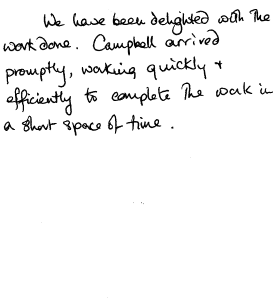 We have been delighted with the
work done. Campbell arrived
promptly, working quickly +
efficiently to complete the work in
a short space of time.